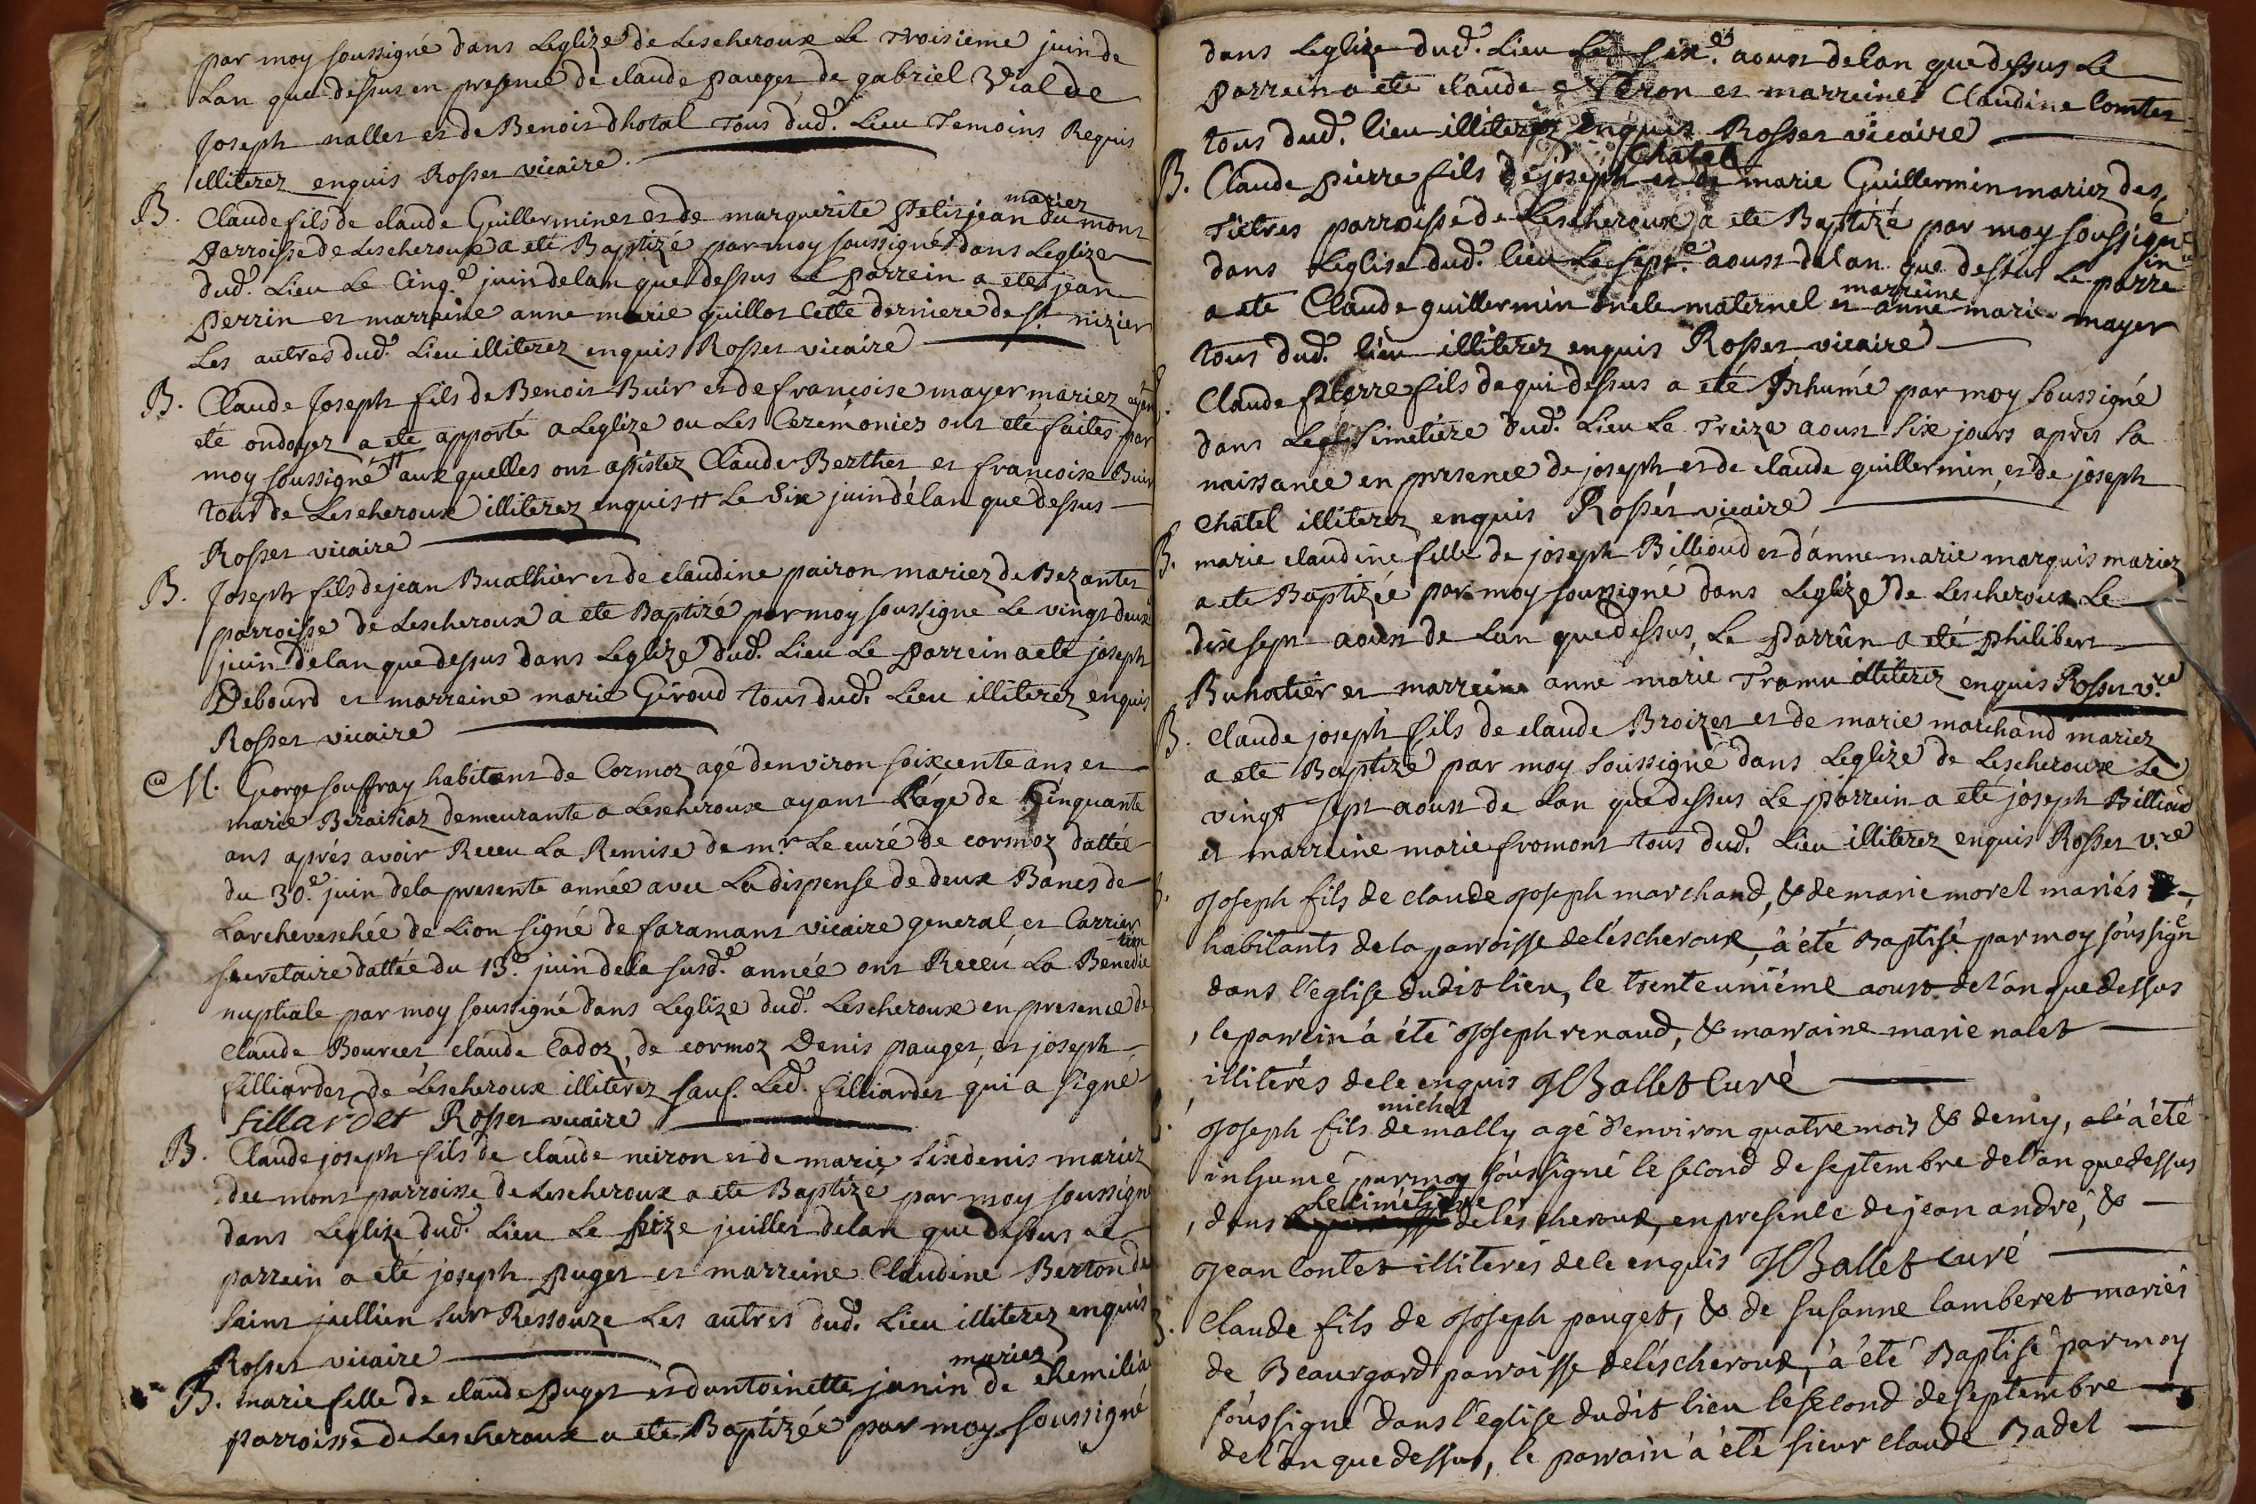 par moy soussigné dans Leglize de Lescheroux Le Troisieme juin de
Lan que dessus en presence de claude pauget, de gabriel Vial de
Joseph nallet et de Benoit dhotal Tous dud.e Lieu Temoins Requis
illiterez enquis Rosset vicaire
B. Claude fils de claude Guillerminet et de marguerite Petitjean mariez du mont
Parroisse de Lescheroux a eté Baptizé par moy soussigné dans Leglize
dud.e Lieu Le Cinq.e juin de lan que dessus Le Parrein a eté jean
Perrin et marreine anne marie guillot Cette derniere de St nizier
Les autres dud.e Lieu illiterez enquis Rosset vicaire
B. Claude Joseph fils de Benoit Buir et de francoise mayer mariez ayant
eté ondoyez a eté apporté a Leglize ou Les Ceremoniez ont eté faites par
moy soussigné # auxquelles ont assistez Claude Berthet et francoise Buir
tous de Lescheroux illiterez enquis # Le Six juin de lan que dessus
Rosset vicaire
B. Joseph fils de jean Buathier et de claudine pairon mariez de Bezantet
parroisse de Lescheroux a eté Baptizé par moy soussigné Le vingt deux
juin de lan que dessus dans Leglize dud.e Lieu Le Parrein a eté joseph
Debourd et marreine marie Giroud tous dud.e Lieu illiterez enquis
Rosset vicaire
M. George souffray habitant de Cormoz agé denviron soixcente ans et
marie Beraitiaz demeurante a Lescheroux ayant Lage de Cinquante
ans aprés avoir Receu La Remise de mr Le curé de cormoz dattée
du 30.e juin de la presente année avec La dispense de deux Bancs de
Larcheveschée de Lion signé de faramant vicaire general et Carrier
secretaire dattée du 13.e juin de la susd.e année ont Receu La Benediction
nuptiale par moy soussigné dans Leglize dud.e Lescheroux en presence de
claude Bourcet claude Cadoz, de cormoz Denis pauget, et joseph
filliardet de Lescheroux illiterez sauf Led.e filliardet qui a signé
fillardet Rosset vicaire
B. Claude joseph fils de claude neiron et de marie sixdenis mariez
du mont parroisse de Lescheroux a eté Baptizé par moy soussigné
dans Leglize dud.e Lieu Le seize juillet de lan que dessus Le
parrein a eté joseph Puget et marreine Claudine Berton de
saint jullien sur Ressouze Les autres dud.e Lieu illiterez enquis
Rosset vicaire
B. marie fille de claude Puget et dantoinette janin mariez de Remiléa
parroisse de Lescheroux a eté Baptizée par moy soussigné
dans Leglize dud.e Lieu Le six.e aoust de lan que dessus Le
Parrein a eté claude Neron et marreine Claudine Comtet
tous dud.e lieu illiterez Enquis Rosset vicaire
B. Claude Pierre fils de joseph Chatel et de marie Guillermin mariez des
Tietres parroisse de Lescheroux a eté Baptizé par moy soussigné
dans Leglise dud.e lieu Le sept.e aoust de lan que dessus Le parrein
a eté Claude guillermin oncle maternel et marreine anne marie mayer
tous dud.e lieu illiterez enquis Rosset vicaire
Claude Pierre fils de qui dessus a eté Inhumé par moy soussigné
dans Le Simetiere dud.e Lieu Le Treize aoust six jours aprés sa
naissance en presence de joseph et de claude guillermin, et de joseph
Chatel illiterez enquis Rosset vicaire
B. marie claudine fille de joseph Billioud et danne marie marquis mariez
a eté Baptizée par moy soussigné dans Leglize de Lescheroux Le
dix sept aoust de Lan que dessus, Le Parrein a eté Philibert
Buhatier et marreine anne marie Tramu illiterez enquis Rosset v.re
B. Claude joseph fils de claude Broizet et de marie marchand mariez
a eté Baptizé par moy soussigné dans Leglize de Lescheroux Le
vingt sept aoust de Lan que dessus Le parrein a eté joseph Billioud
et marreine marie fromont tous dud.e Lieu illiterez enquis Rosset v.re
Joseph fils de claude joseph marchand, & de marie morel mariés
habitants de la parroisse de léscheroux, à été Baptisé par moy soussigné
dans l'église dudit lieu, le trente uniéme aoust de l'an que dessus
, le parrein à été Joseph renaud, & marraine marie nalet
illiterés de le enquis JBallet Curé
Joseph fils de michel mally agé d'environ quatre mois & demy, à été
inhumé par moy soussigné le second de septembre de l'an que dessus
, dans le cimetiere de léscheroux, en presence de jean andré, &
Jean Contet illiterés de le enquis JBallet curé
B. Claude fils de Joseph pauget, & de susanne lamberet mariés
de Beauregard parroisse de léscheroux, à été Baptisé par moy
soussigné dans l'église dudit lieu le second de septembre
de l'an que dessus, le parrain à été sieur claude Badel